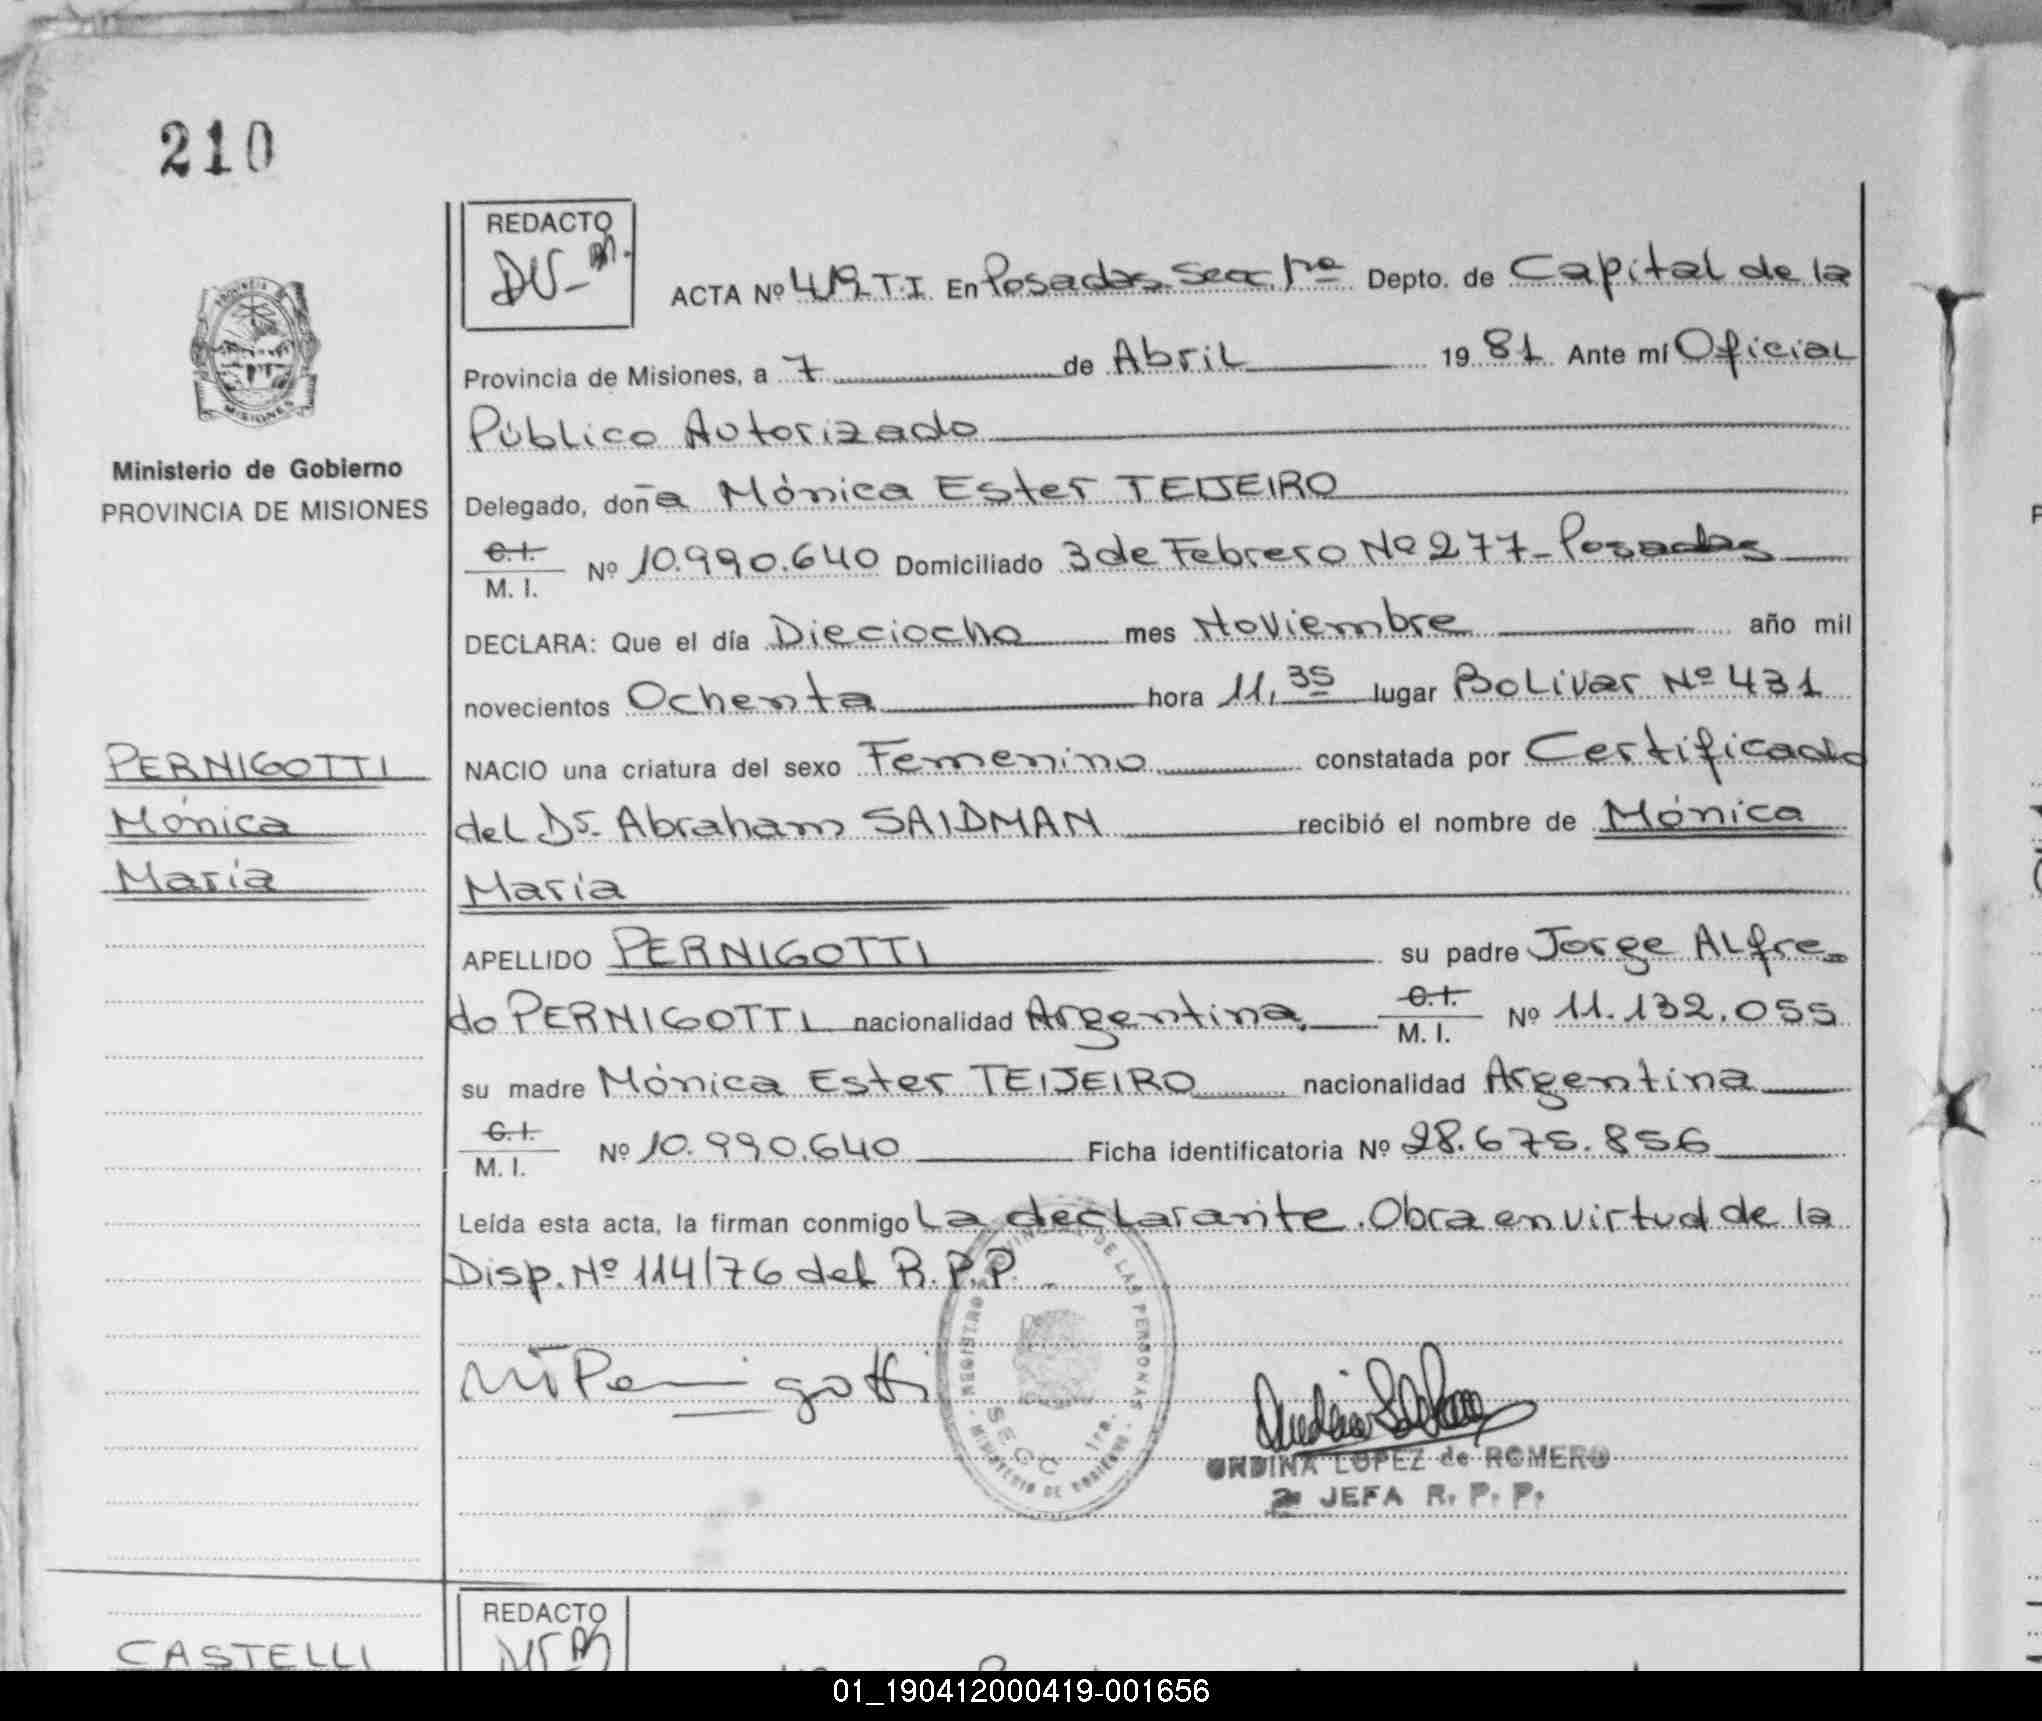 210
REDACTO
ACTA Nº 419 T.I. En Posadas Secc. 1ra Depto. de Capital de la
Provincia de Misiones, a 7 de Abril 1981 Ante mí Oficial
Público Autorizado
MISIONES
Ministerio de Gobierno
PROVINCIA DE MISIONES
Delegado, doña Mónica Ester TEIJEIRO
C.I.
M. I. Nº 10.990.640 Domiciliado 3 de Febrero Nº 277 - Posadas
DECLARA: Que el día Dieciocho mes Noviembre año mil
novecientos Ochenta hora 11,35 lugar Bolivar Nº 431
PERNIGOTTI
Mónica
María
NACIO una criatura del sexo Femenino constatada por Certificado
del Dr. Abraham SAIDMAN recibió el nombre de Mónica
María
APELLIDO PERNIGOTTI su padre Jorge Alfre-
do PERNIGOTTI nacionalidad Argentina C.I. M. I. Nº 11.132.055
su madre Mónica Ester TEIJEIRO nacionalidad Argentina
C.I.
M. I. Nº 10.990.640 Ficha identificatoria Nº 28.675.856
Leída esta acta, la firman conmigo La declarante. Obra en virtud de la
Disp. Nº 114/76 del R.P.P.
REGISTRO PROVINCIAL DE LAS PERSONAS
SECC. 1ra.
MINISTERIO DE GOBIERNO
ONDINA LOPEZ de ROMERO
2ª JEFA R. P. P.
REDACTO
CASTELLI
01_190412000419-001656